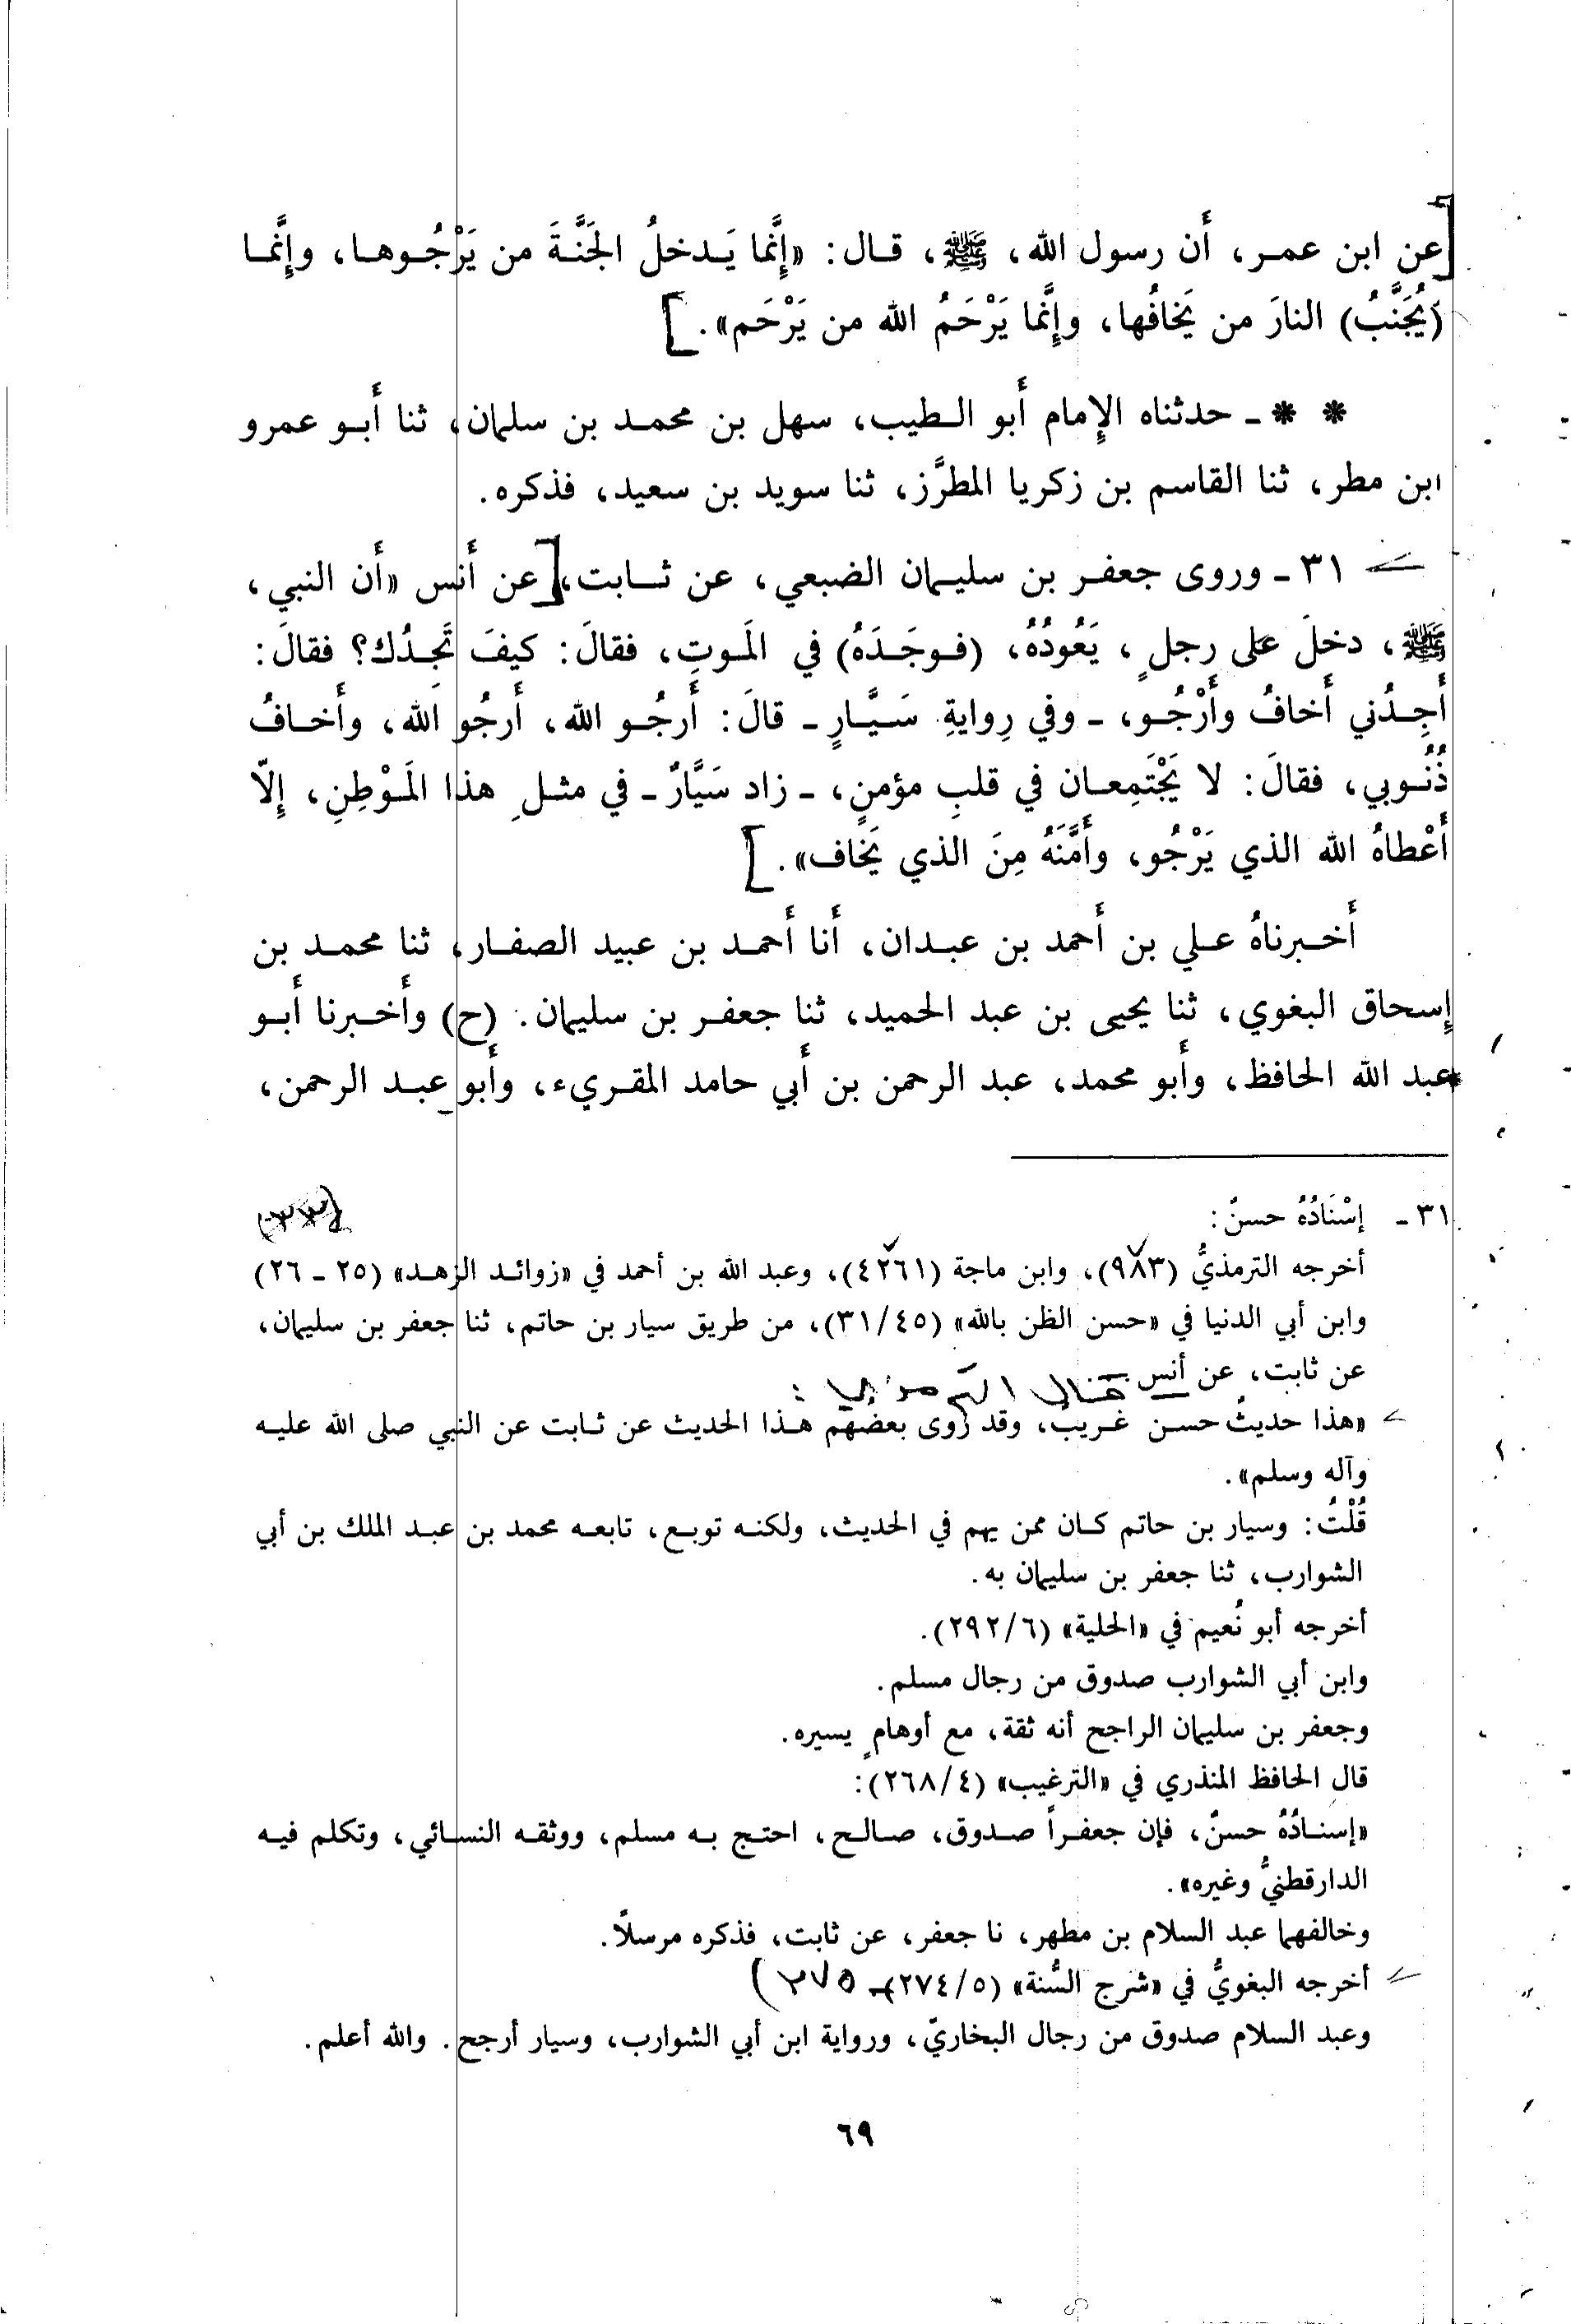 عن ابن عمر، أن رسول الله، ﷺ، قال: «إِنَّما يَدخلُ الجَنَّةَ من يَرْجُوها، وإِنَّما
(يُجَنَّبُ) النارَ من يَخافُها، وإِنَّما يَرْحَمُ الله من يَرْحَم».
* * ـ حدثناه الإِمام أَبو الطيب، سهل بن محمد بن سلمان، ثنا أَبو عمرو
ابن مطر، ثنا القاسم بن زكريا المطرَّز، ثنا سويد بن سعيد، فذكره.
٣١ ـ وروى جعفر بن سليمان الضبعي، عن ثابت، عن أَنس «أَن النبي،
ﷺ، دخلَ على رجلٍ، يَعُودُهُ، (فوجَدَهُ) في المَوتِ، فقالَ: كيفَ تَجِدُك؟ فقالَ:
أَجِدُني أَخافُ وأَرْجُو، ـ وفي رِوايةِ سَيَّارٍ ـ قالَ: أَرجُو الله، أَرجُو الله، وأَخافُ
ذُنُوبي، فقالَ: لا يَجْتَمِعان في قلبِ مؤمنٍ، ـ زاد سَيَّارٌ ـ في مثلِ هذا المَوْطِنِ، إِلّا
أَعْطاهُ الله الذي يَرْجُو، وأَمَّنَهُ مِنَ الذي يَخاف».
أَخبرناهُ علي بن أَحمد بن عبدان، أَنا أَحمد بن عبيد الصفار، ثنا محمد بن
إِسحاق البغوي، ثنا يحيى بن عبد الحميد، ثنا جعفر بن سليمان. (ح) وأَخبرنا أَبو
عبد الله الحافظ، وأَبو محمد، عبد الرحمن بن أَبي حامد المقريء، وأَبو عبد الرحمن،
٣١ ـ إسْنَادُهُ حسنٌ:
أخرجه الترمذيُّ (٩٨٣)، وابن ماجة (٤٢٦١)، وعبد الله بن أحمد في «زوائد الزهد» (٢٥ ـ ٢٦)
وابن أبي الدنيا في «حسن الظن بالله» (٣١/٤٥)، من طريق سيار بن حاتم، ثنا جعفر بن سليمان،
عن ثابت، عن أنس قال الترمذي:
«هذا حديثٌ حسن غريب، وقد رَوى بعضهم هذا الحديث عن ثابت عن النبي صلى الله عليه
وآله وسلم».
قُلْتُ: وسيار بن حاتم كان ممن يهم في الحديث، ولكنه توبع، تابعه محمد بن عبد الملك بن أبي
الشوارب، ثنا جعفر بن سليمان به.
أخرجه أبو نُعيم في «الحلية» (٢٩٢/٦).
وابن أبي الشوارب صدوق من رجال مسلم.
وجعفر بن سليمان الراجح أنه ثقة، مع أوهامٍ يسيره.
قال الحافظ المنذري في «الترغيب» (٢٦٨/٤):
«إسنادُهُ حسنٌ، فإن جعفراً صدوق، صالح، احتج به مسلم، ووثقه النسائي، وتكلم فيه
الدارقطنيُّ وغيره».
وخالفهما عبد السلام بن مطهر، نا جعفر، عن ثابت، فذكره مرسلًا.
أخرجه البغويُّ في «شرح السُّنة» (٢٧٤/٥ ـ ٢٧٥)
وعبد السلام صدوق من رجال البخاريّ، ورواية ابن أبي الشوارب، وسيار أرجح. والله أعلم.
٦٩